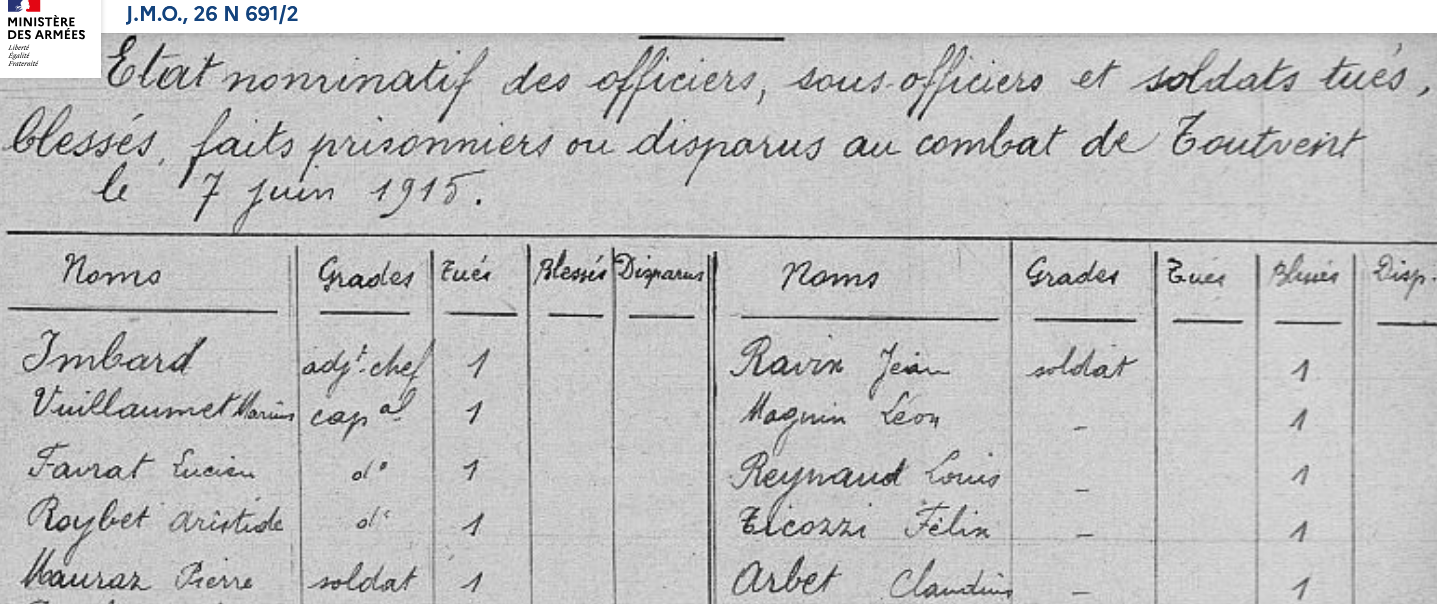 MINISTÈRE
DES ARMÉES
Liberté
Égalité
Fraternité
J.M.O., 26 N 691/2
Etat nominatif des officiers, sous-officiers et soldats tués,
blessés, faits prisonniers ou disparus au combat de Toutvent
le 7 juin 1915.
Noms Grades Tués Blessés Disparus Noms Grades Tués Blessés Disp.
Imbard adjt. chef 1 Ravix Jean soldat 1
Vuillaumet Marius capal 1 Magnin Léon - 1
Favrat Lucien do 1 Reynaud Louis - 1
Roybet Aristide do 1 Ticozzi Félix - 1
Mauraz Pierre soldat 1 Arbet Claudius - 1